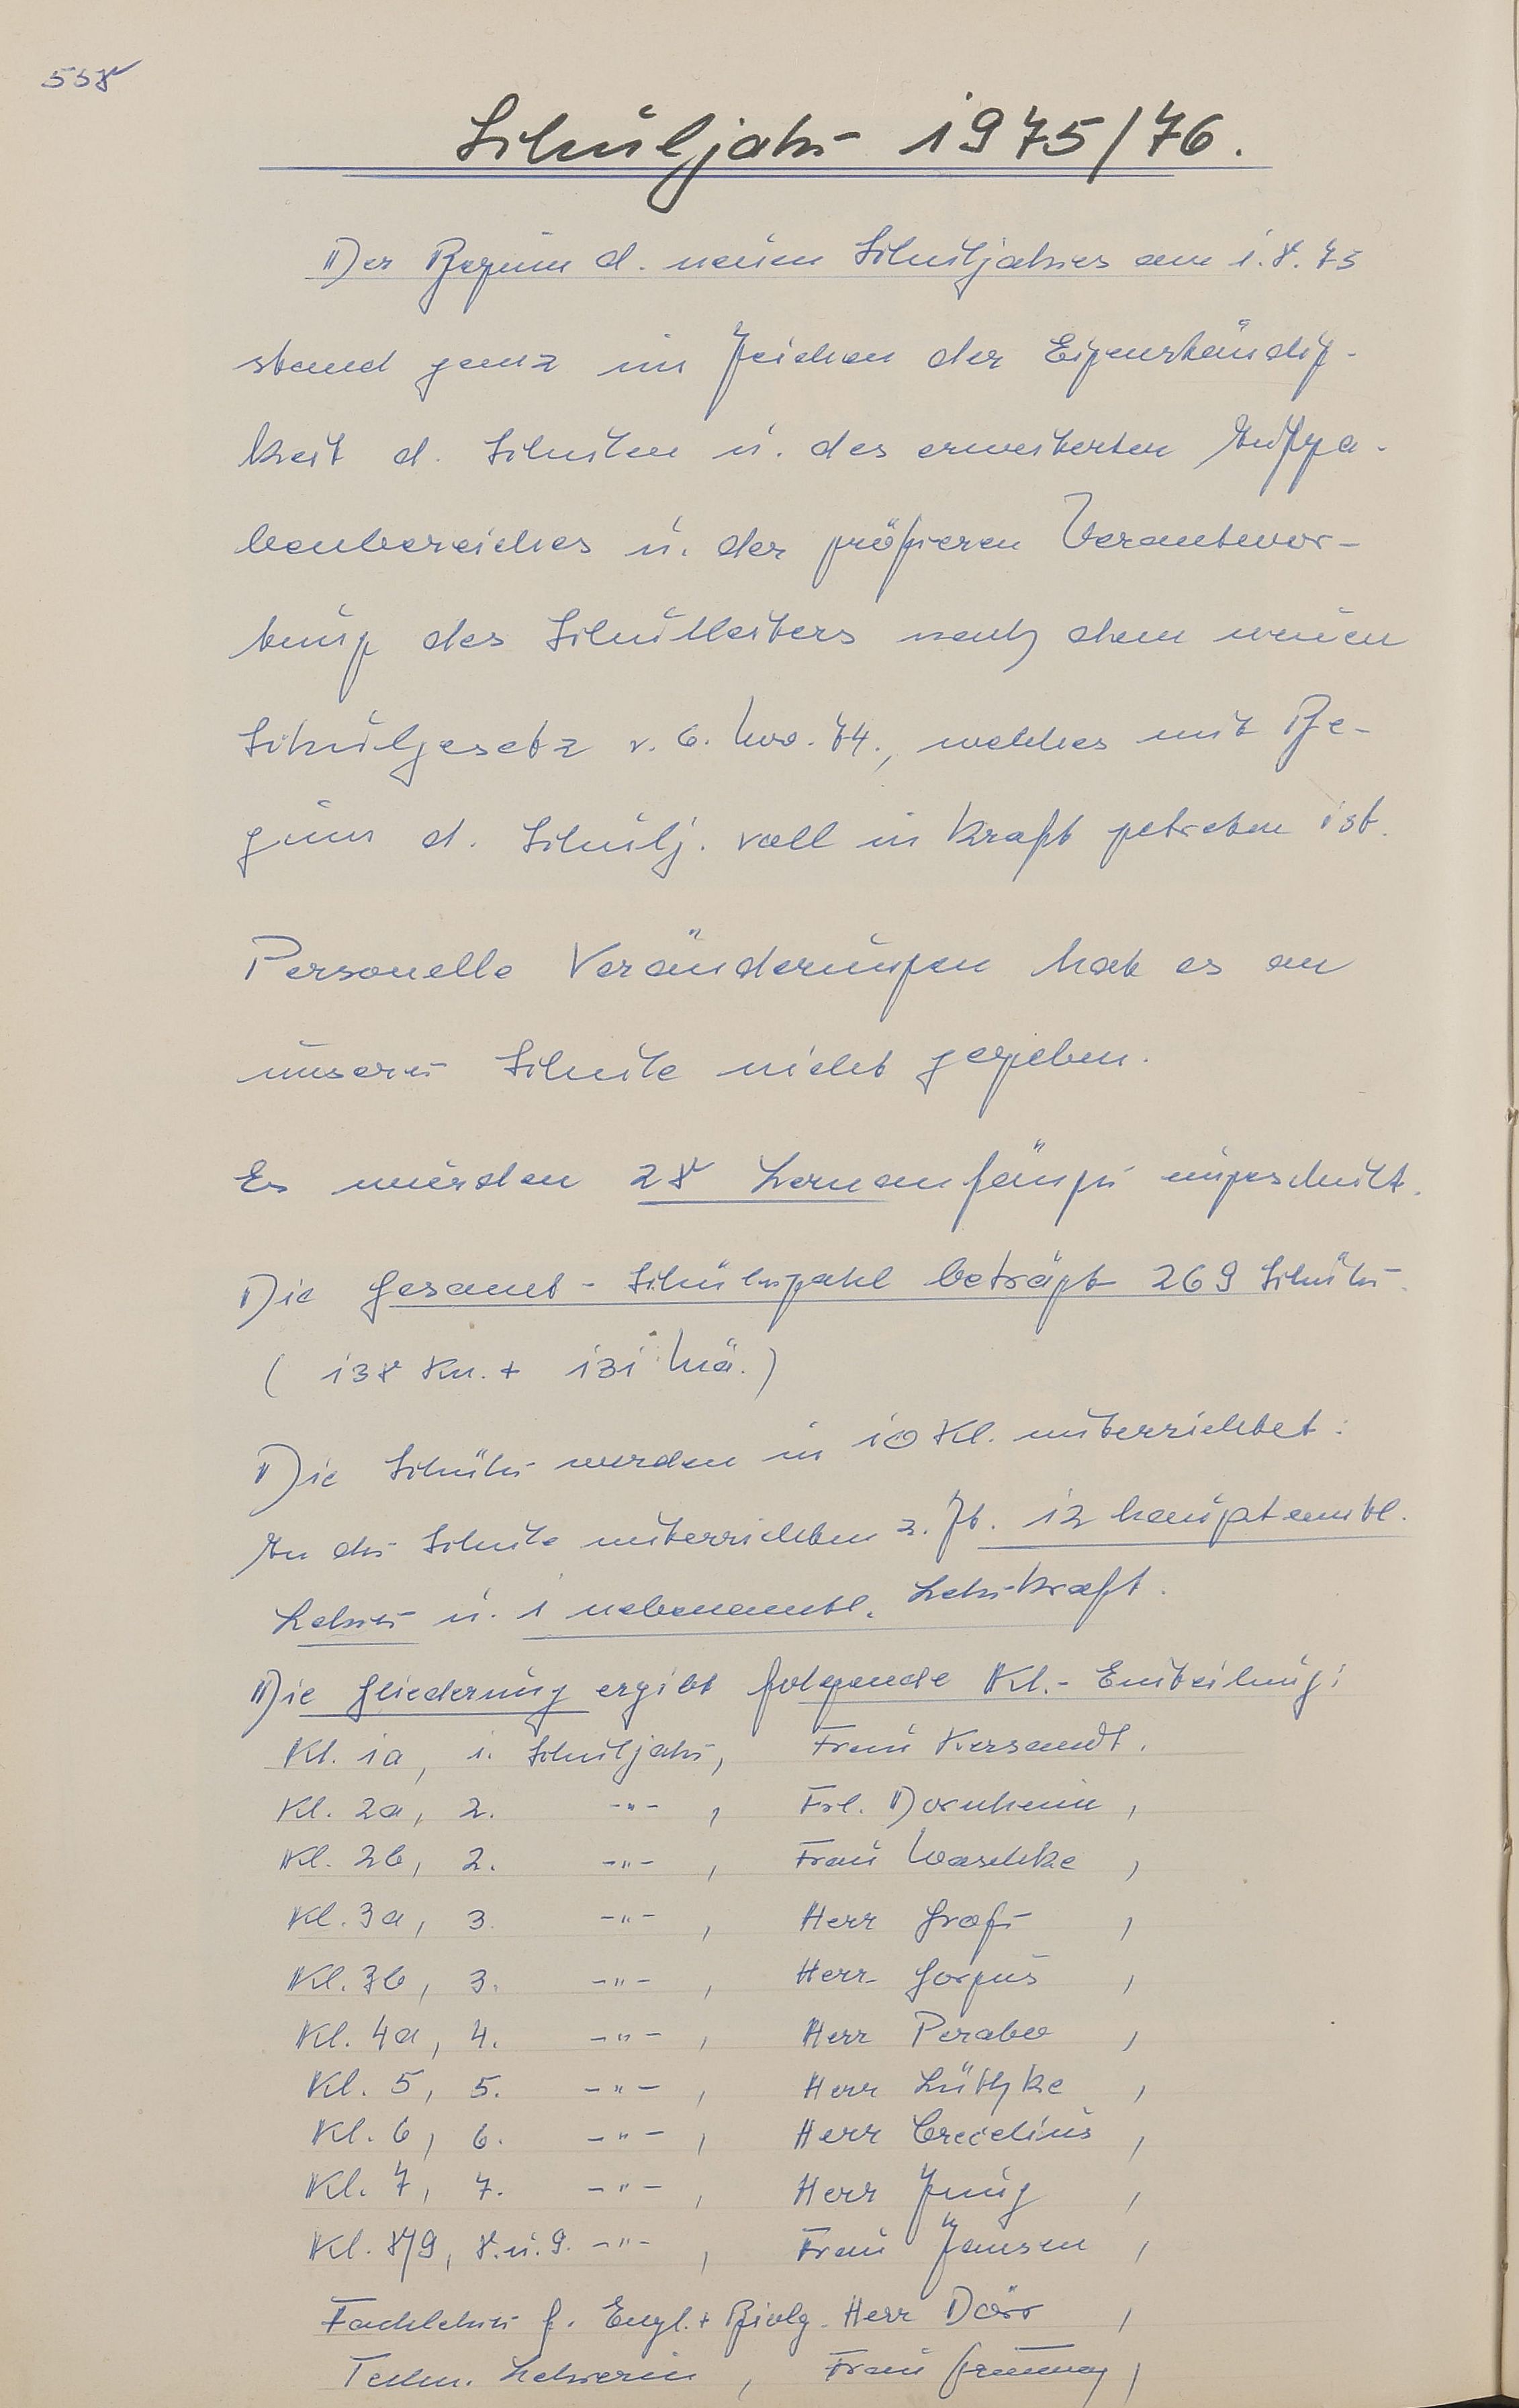 558
Schuljahr 1975/76.
Der Beginn d. neuen Schuljahres am 1.8.75
stand ganz im Zeichen der Eigenständig-
keit d. Schulen u. des erweiterten Aufga-
benbereiches u. der größeren Verantwor-
tung des Schulleiters nach dem neuen
Schulgesetz v. 6. Nov. 74., welches mit Be-
ginn d. Schulj. voll in Kraft getreten ist.
Personelle Veränderungen hat es an
unserer Schule nicht gegeben.
Es wurden 28 Lernanfänger eingeschult.
Die Gesamt-Schülerzahl beträgt 269 Schüler.
( 138 Kn. + 131 Mä. )
Die Schüler werden in 10 Kl. unterrichtet:
An der Schule unterrichten z. Zt. 12 hauptamtl.
Lehrer u. 1 nebenamtl. Lehrkraft.
Die Gliederung ergibt folgende Kl.-Einteilung:
Kl. 1a, 1. Schuljahr, Frau Kersandt.
Kl. 2a, 2. -"- , Frl. Dornheim ,
Kl. 2b, 2. -"- , Frau Waschke ,
Kl. 3a, 3. -"- , Herr Graf ,
Kl. 3b, 3. -"- , Herr Gorgus ,
Kl. 4a, 4. -"- , Herr Perabo ,
Kl. 5, 5. -"- , Herr Lüthke ,
Kl. 6, 6. -"- , Herr Crecelius ,
Kl. 7, 7. -"- , Herr Jung ,
Kl. 8/9, 8. u. 9. -"- , Frau Jansen ,
Fachlehrer f. Engl. + Biolg. Herr Dörr ,
Techn. Lehrerin , Frau